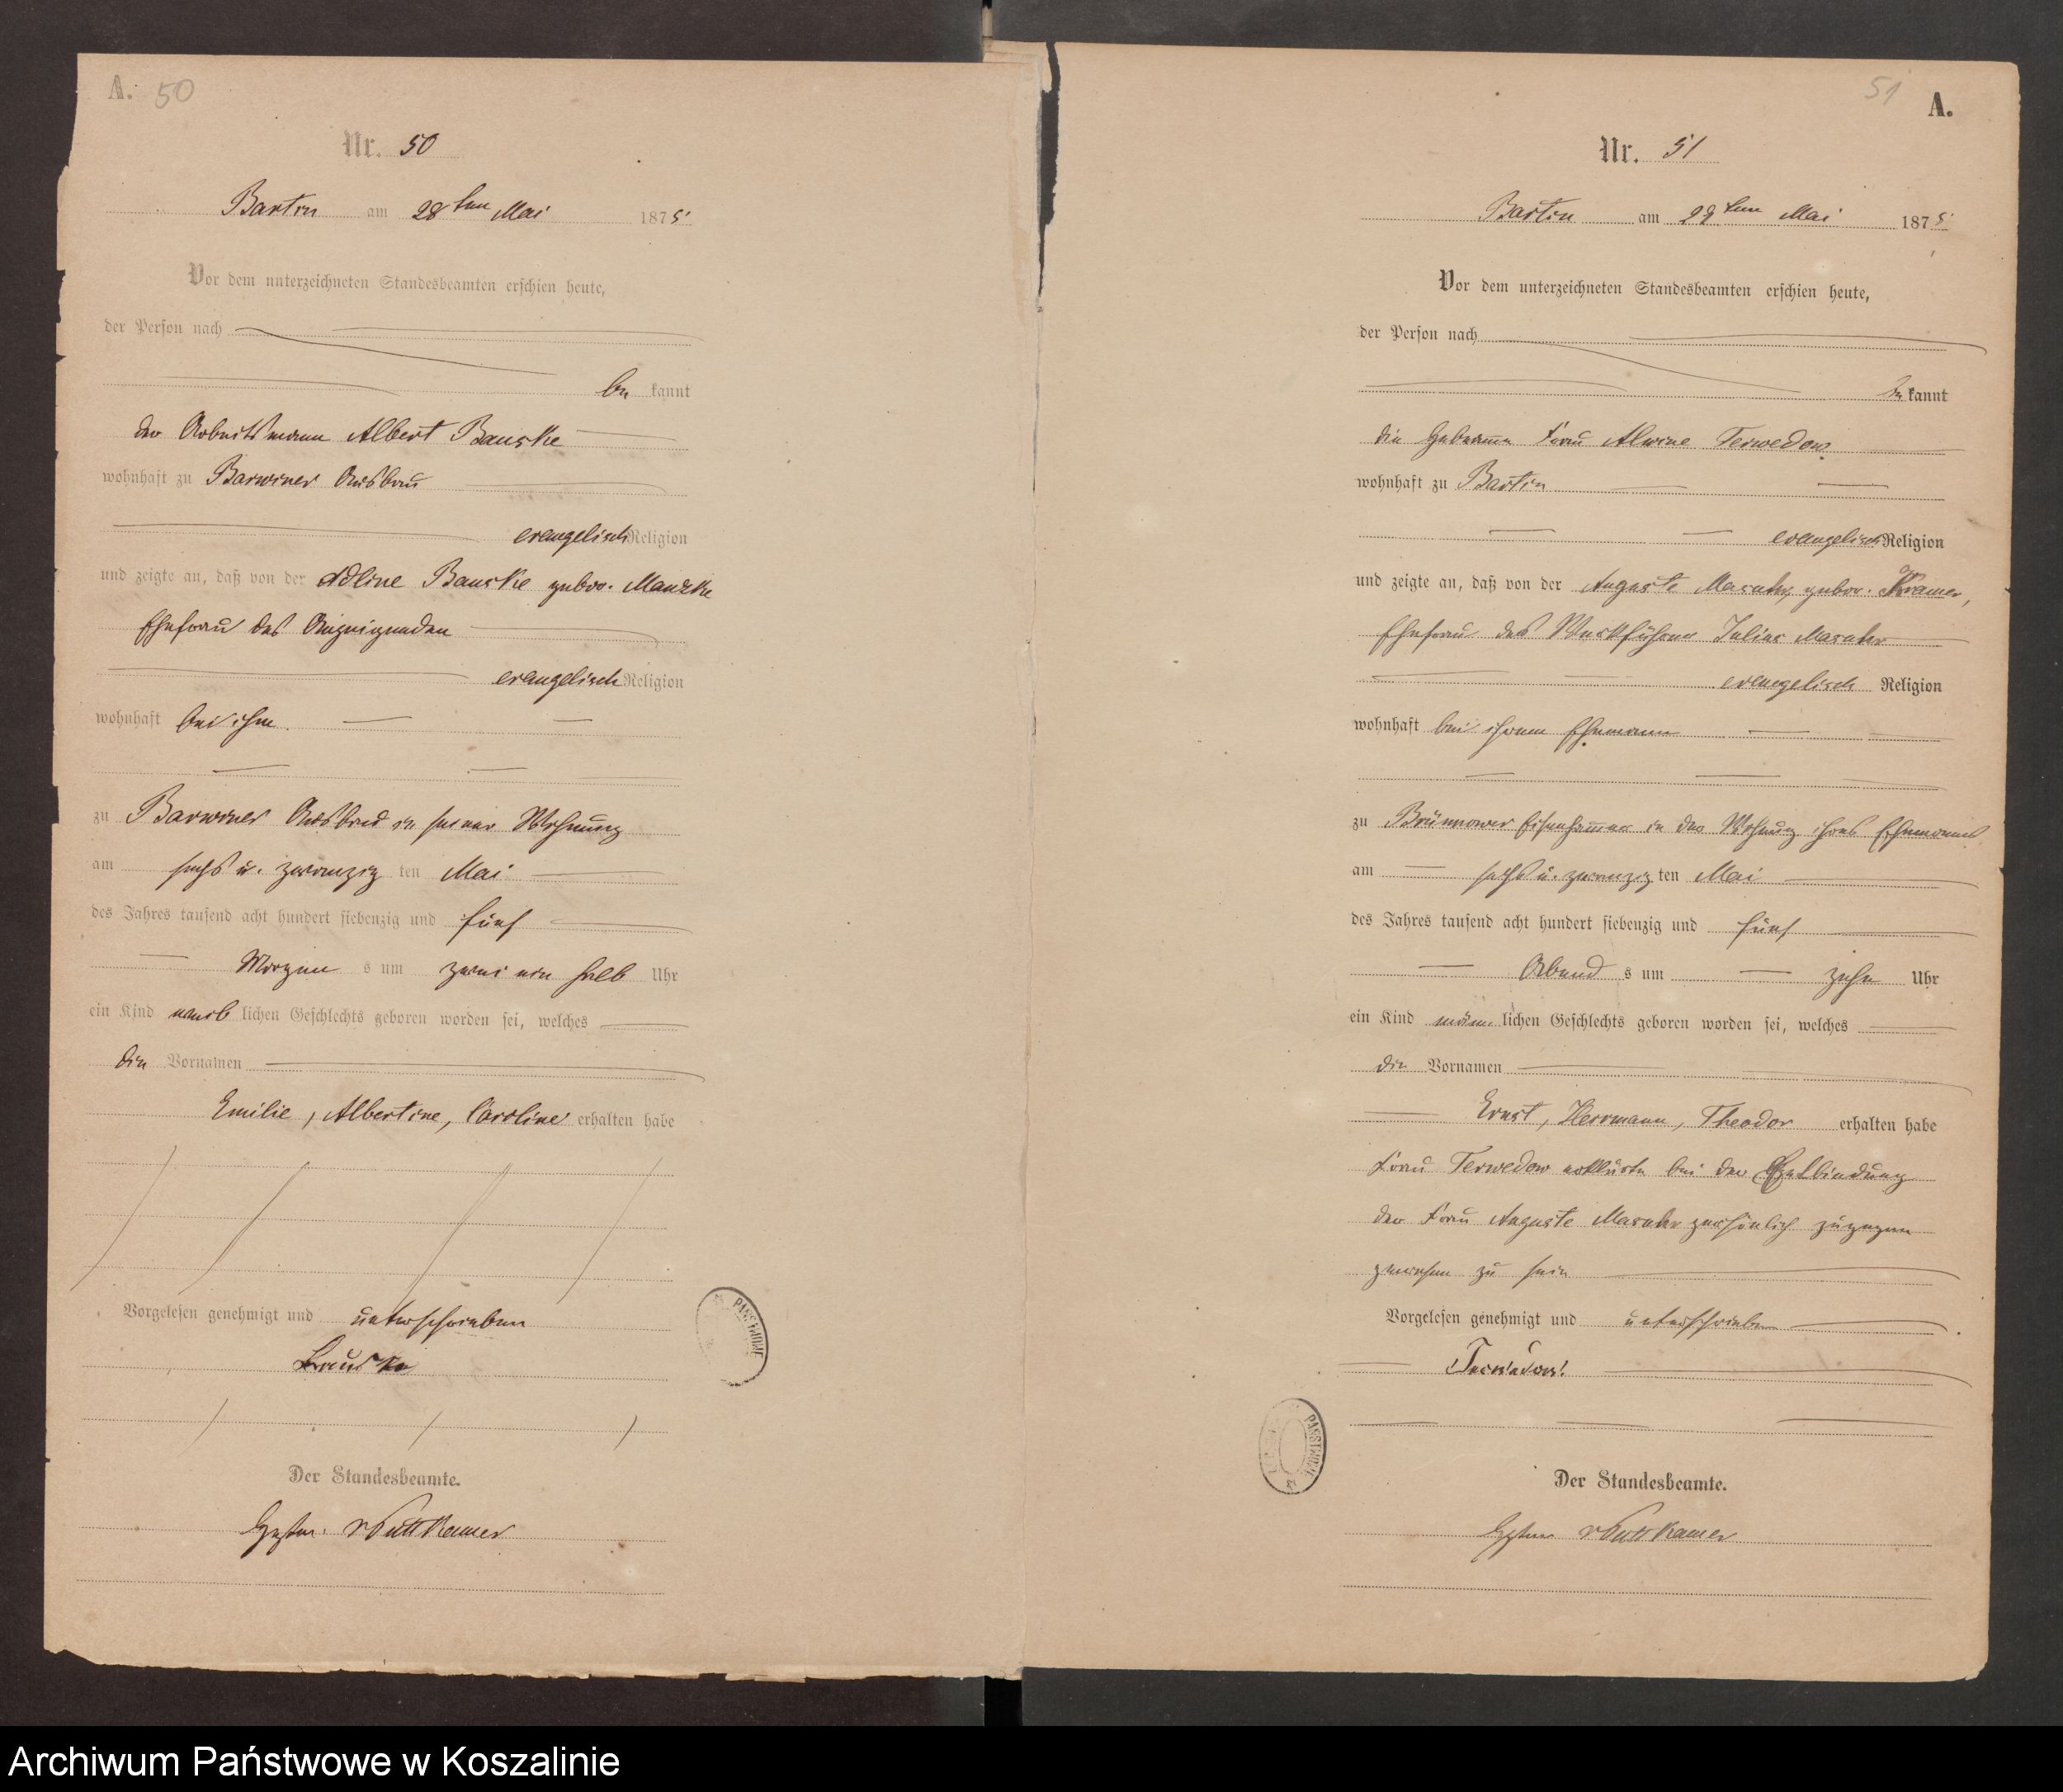 A. 50
Nr. 50
Bartin am 28ten Mai 1875
Vor dem unterzeichneten Standesbeamten erschien heute,
der Person nach
be kannt
der Arbeitsmann Albert Bauske
wohnhaft zu Barwiner Ausbau
evangelisch Religion
und zeigte an, daß von der Adline Bauske gebor. Manzke
Ehefrau des Anzeigenden
evangelisch Religion
wohnhaft bei ihm
zu Barwiner Ausbau in seiner Wohnung
am sechs u. zwanzig ten Mai
des Jahres tausend acht hundert siebenzig und fünf
Morgen s um zwei ein halb Uhr
ein Kind weib lichen Geschlechts geboren worden sei, welches
die Vornamen
Emilie, Albertine, Caroline erhalten habe
Vorgelesen genehmigt und unterschrieben
Bauske
Der Standesbeamte.
v Puttkamer
PAŃSTWOWE
51
A.
Nr. 51
Bartin am 29ten Mai 1875
Vor dem unterzeichneten Standesbeamten erschien heute,
der Person nach
be kannt
die Hebamme Frau Alwine Terwedow
wohnhaft zu Bartin
evangelisch Religion
und zeigte an, daß von der Auguste Masuhr, gebor. Kramer,
Ehefrau des Werkführer Julius Masuhr
evangelisch Religion
wohnhaft bei ihrem Ehemann
zu Brünnower Eisenhammer in der Wohnung ihres Ehemannes
am sechs u. zwanzig ten Mai
des Jahres tausend acht hundert siebenzig und fünf
Abend s um zehn Uhr
ein Kind männ lichen Geschlechts geboren worden sei, welches
die Vornamen
Ernst, Herrmann, Theodor erhalten habe
Frau Terwedow erklärte bei der Entbindung
der Frau Auguste Masuhr persönlich zugegen
gewesen zu sein
Vorgelesen genehmigt und unterschrieben
Terwedow.
PAŃSTWOWE
Der Standesbeamte.
v Puttkamer
Archiwum Państwowe w Koszalinie